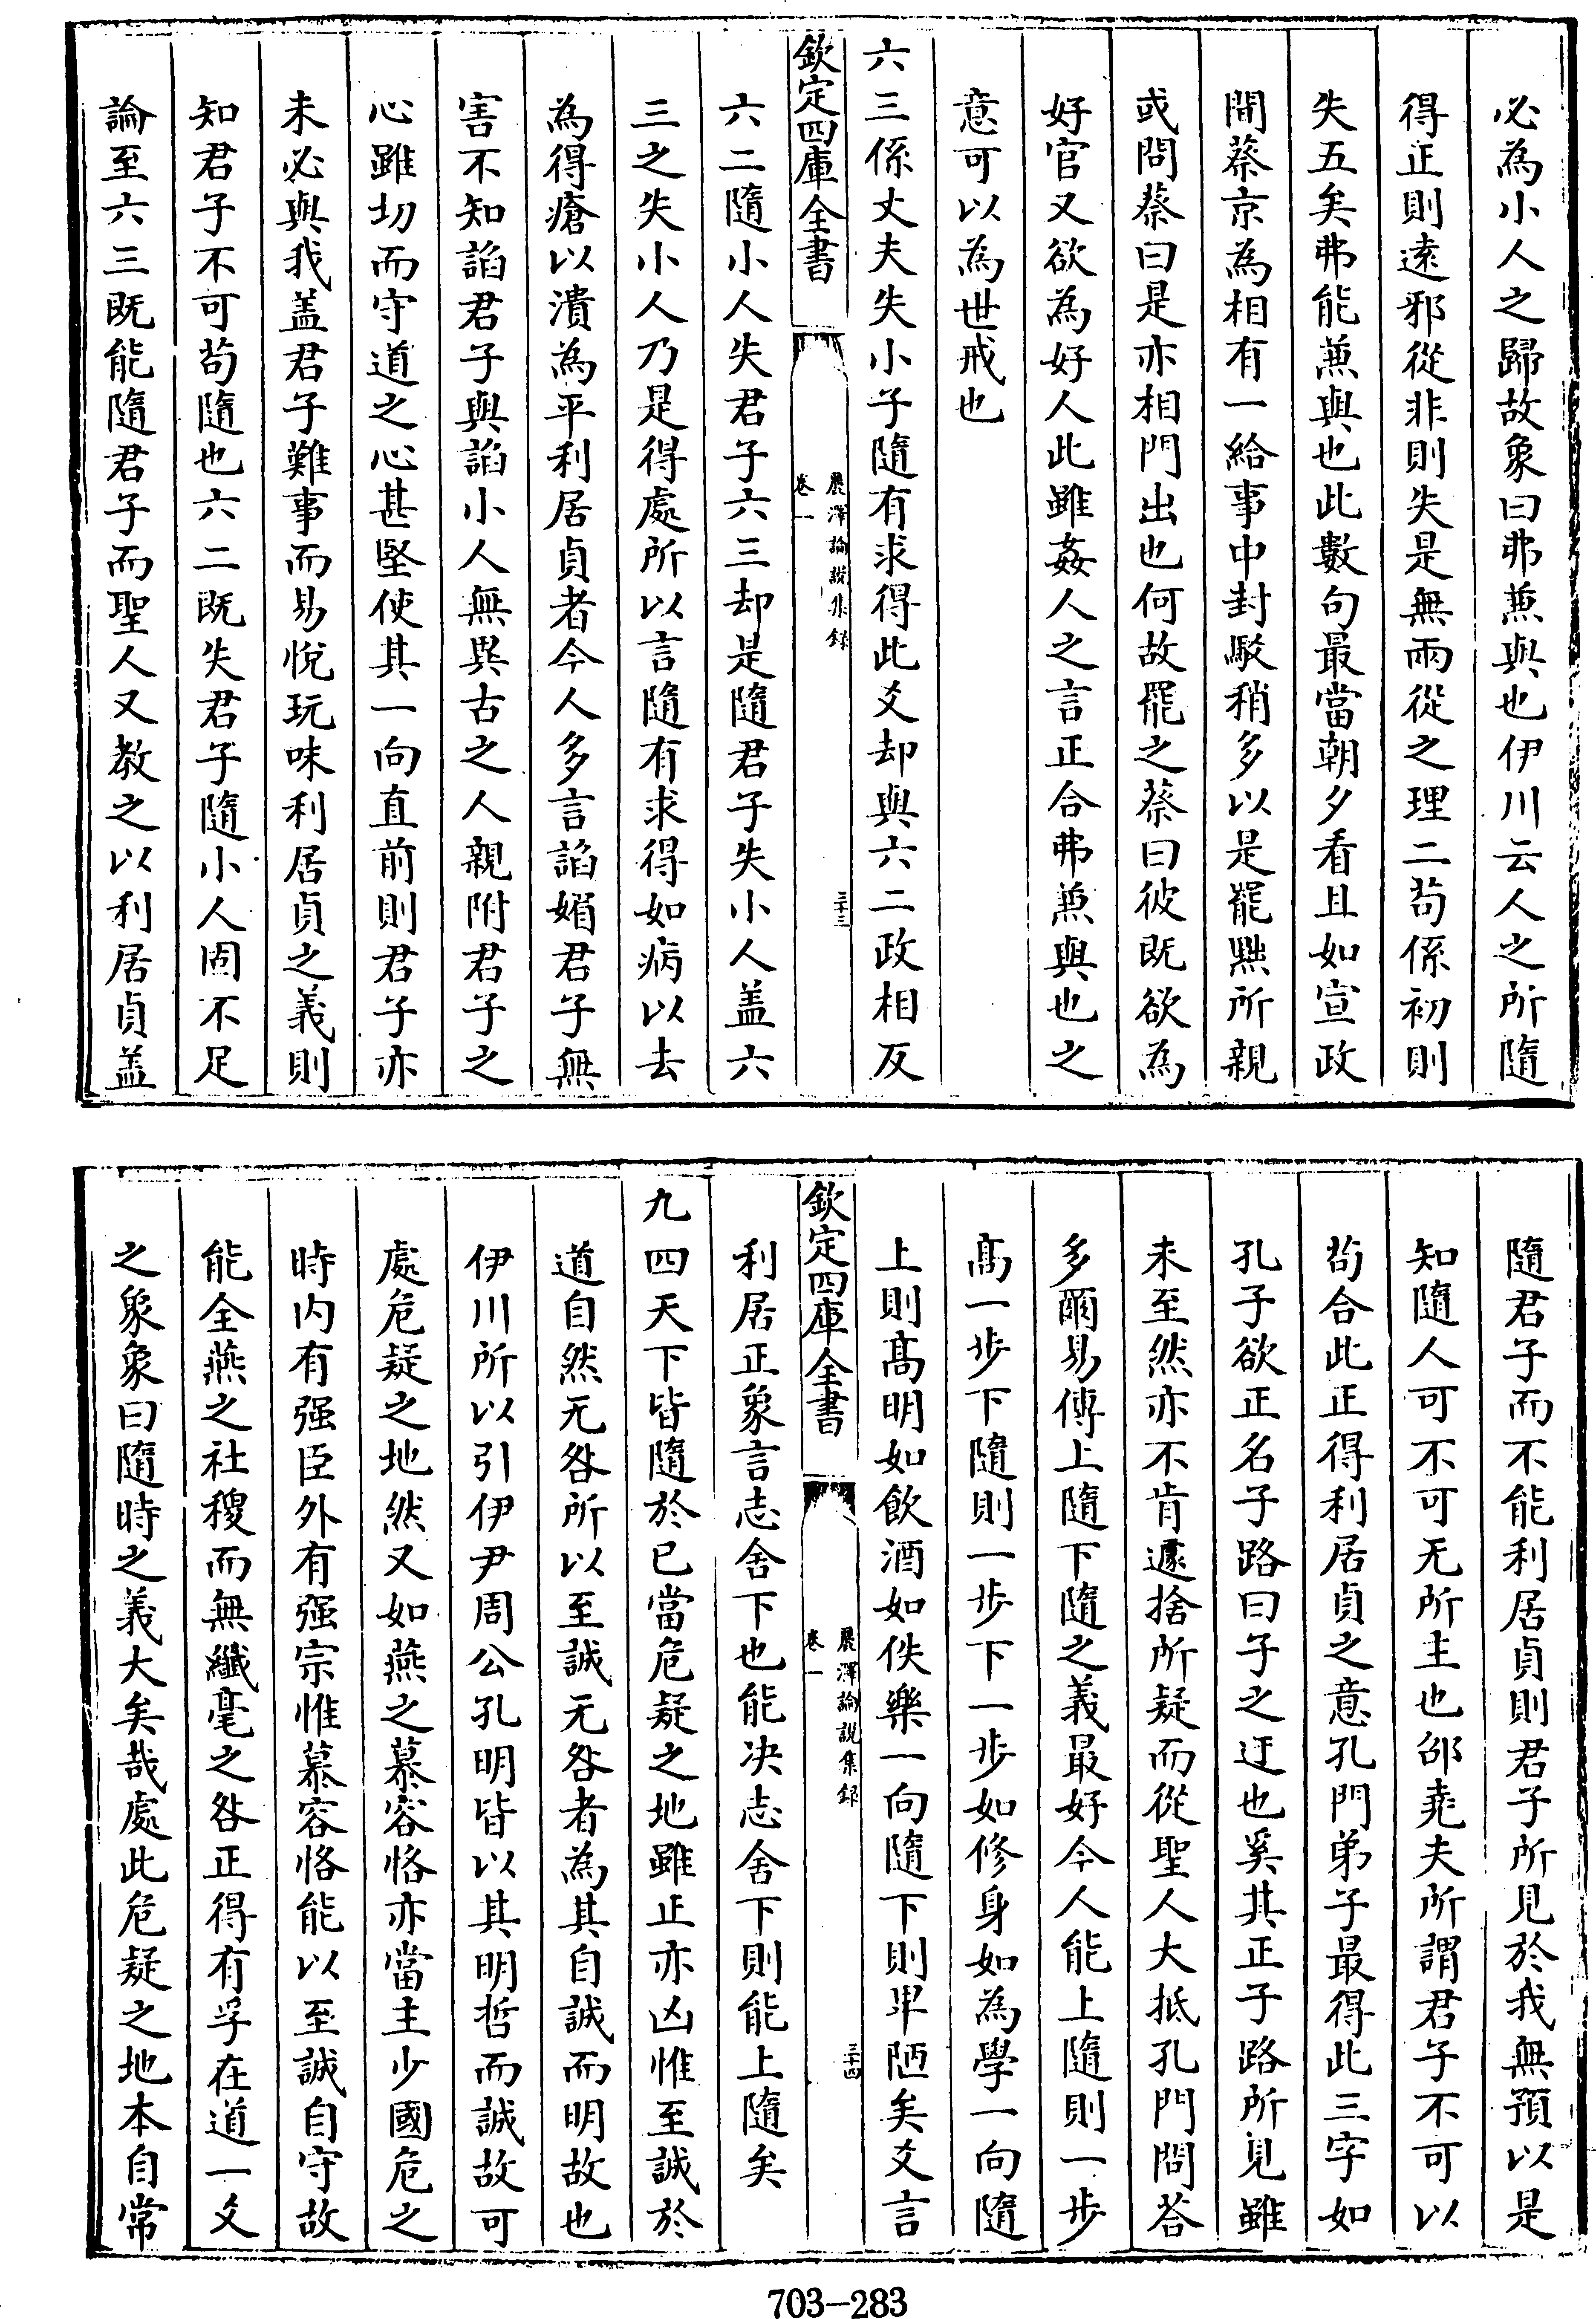 必為小人之歸故象曰弗兼與也伊川云人之所隨
得正則遠邪從非則失是無兩從之理二苟係初則
失五矣弗能兼與也此數句最當朝夕看且如宣政
間蔡京為相有一給事中封駁稍多以是罷黜所親
或問蔡曰是亦相門出也何故罷之蔡曰彼既欲為
好官又欲為好人此雖姦人之言正合弗兼與也之
意可以為世戒也
六三係丈夫失小子隨有求得此爻却與六二政相反
欽定四庫全書
麗澤論說集録
卷一
三十三
六二隨小人失君子六三却是隨君子失小人盖六
三之失小人乃是得處所以言隨有求得如病以去
為得瘡以潰為平利居貞者今人多言諂媚君子無
害不知諂君子與諂小人無異古之人親附君子之
心雖切而守道之心甚堅使其一向直前則君子亦
未必與我盖君子難事而易悅玩味利居貞之義則
知君子不可苟隨也六二既失君子隨小人固不足
論至六三既能隨君子而聖人又教之以利居貞盖
隨君子而不能利居貞則君子所見於我無預以是
知隨人可不可无所主也邵堯夫所謂君子不可以
苟合此正得利居貞之意孔門弟子最得此三字如
孔子欲正名子路曰子之迂也奚其正子路所見雖
未至然亦不肯遽捨所疑而從聖人大抵孔門問答
多爾易傳上隨下隨之義最好今人能上隨則一步
髙一步下隨則一步下一步如修身如為學一向隨
上則髙明如飲酒如佚樂一向隨下則卑陋矣爻言
欽定四庫全書
麗澤論說集録
卷一
三十四
利居正象言志舍下也能决志舍下則能上隨矣
九四天下皆隨於已當危疑之地雖正亦凶惟至誠於
道自然无咎所以至誠无咎者為其自誠而明故也
伊川所以引伊尹周公孔明皆以其明哲而誠故可
處危疑之地然又如燕之慕容恪亦當主少國危之
時内有强臣外有强宗惟慕容恪能以至誠自守故
能全燕之社稷而無纖毫之咎正得有孚在道一爻
之象象曰隨時之義大矣哉處此危疑之地本自常
703-283